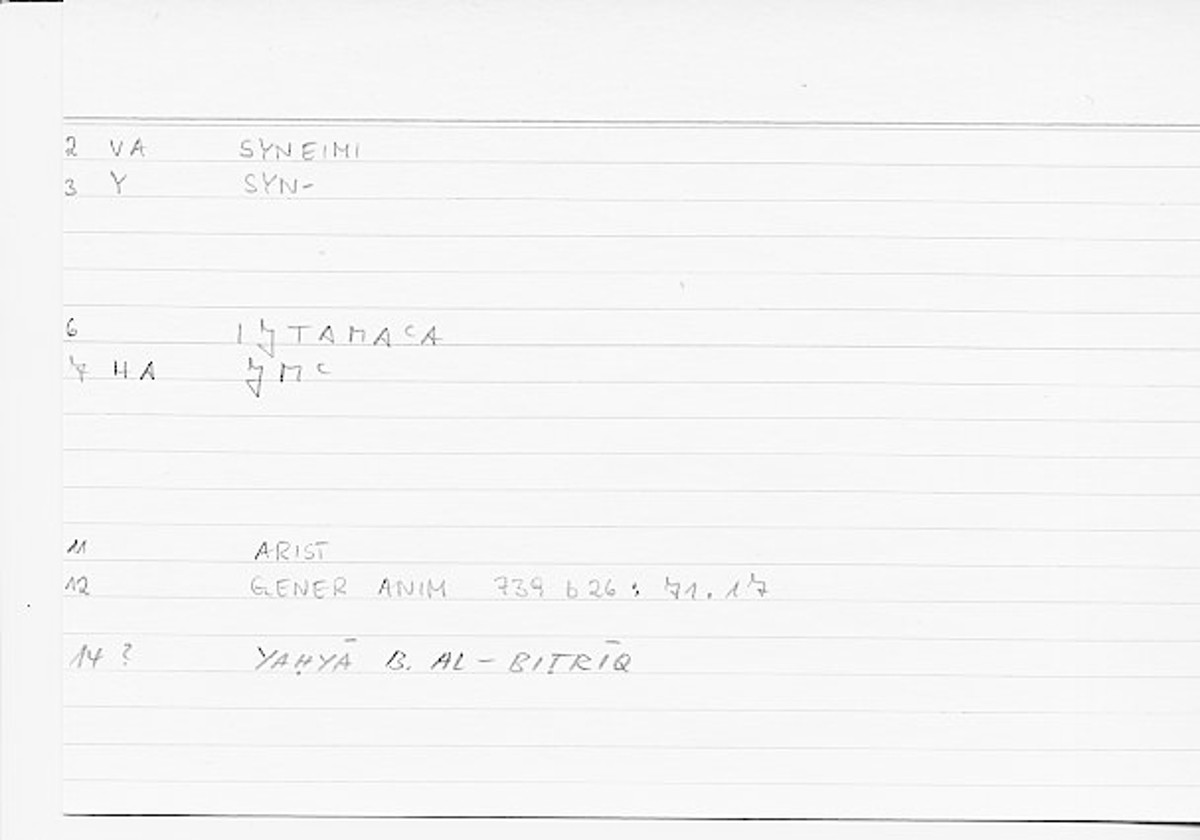 2 VA SYNEIMI
3 Y SYN-
6 IǦTAMAʿA
7 HA ǦMʿ
11 ARIST
12 GENER ANIM 739 b 26 : 71.17
14 ? YAḤYĀ B. AL-BIṬRĪQ